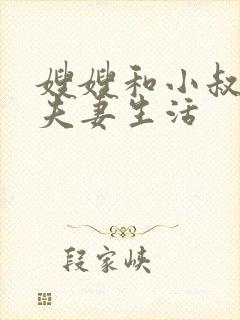 嫂嫂和小叔
夫妻生活
段家峡